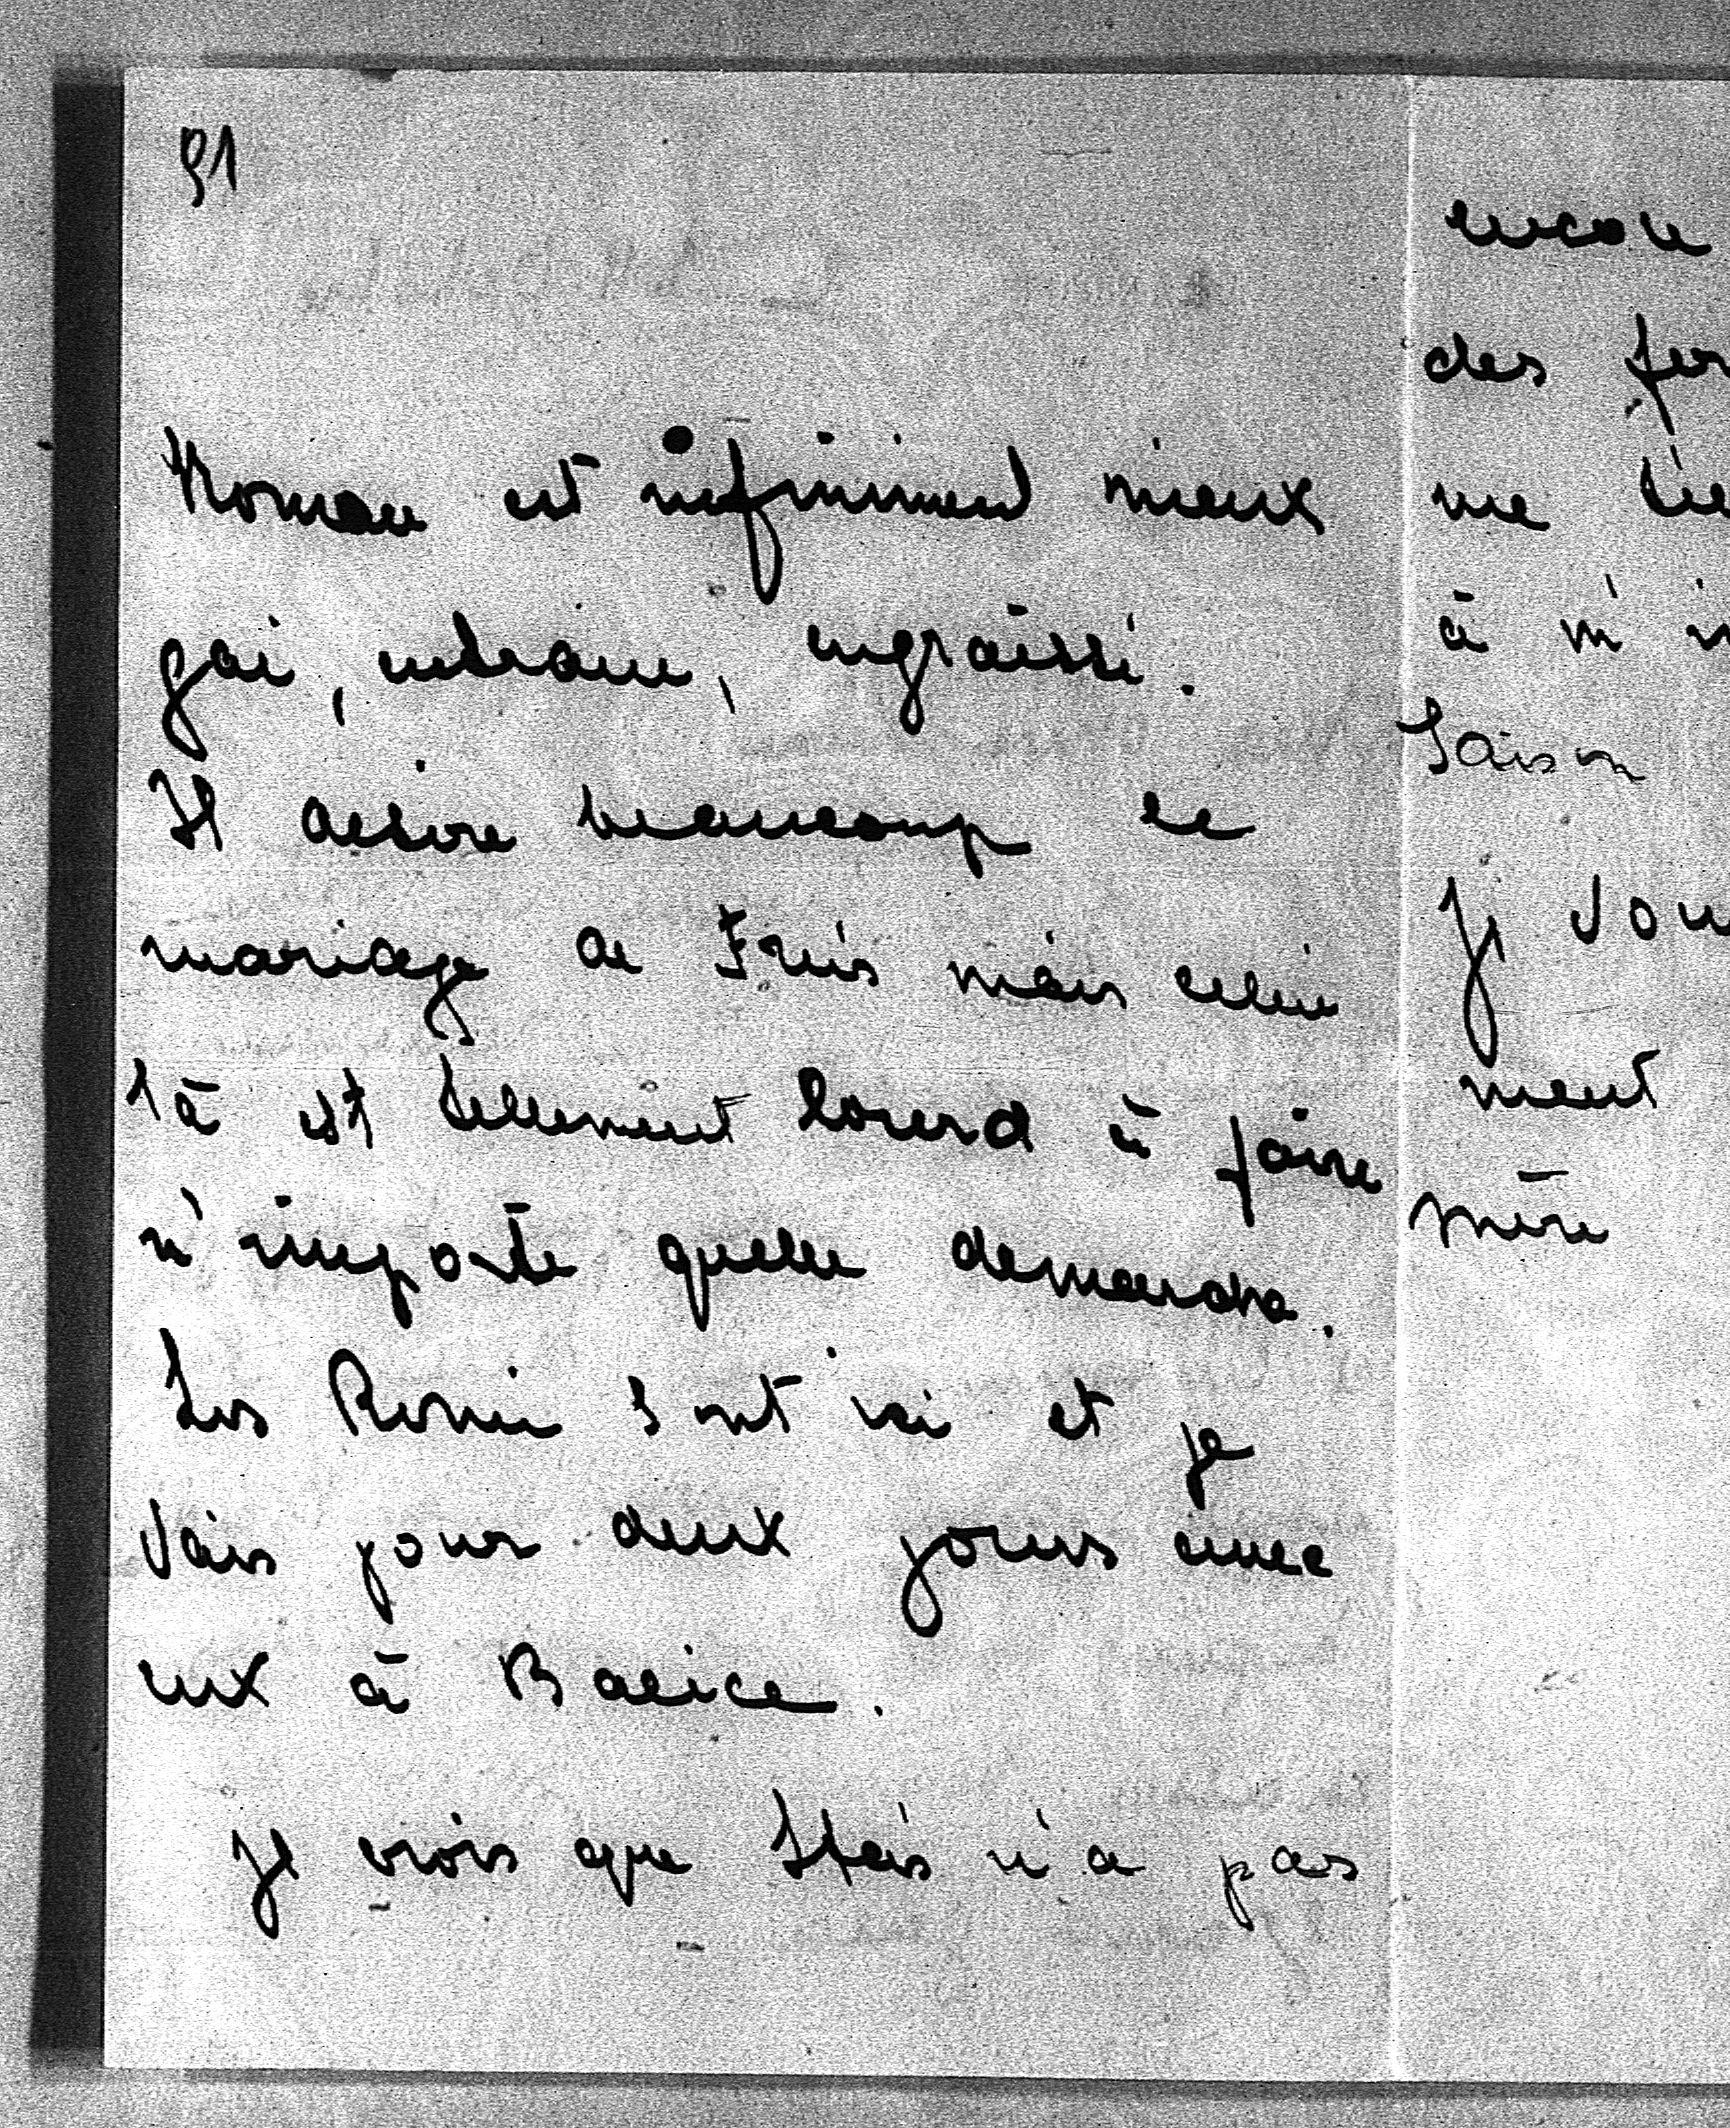 91
Roman est infiniment mieux
gai, entrain, engraissé.
Il desire beaucoup le
mariage de mais celui
là est tellement lourd à faire
n'importe quelle demarche.
Les sont ici et je
vais pour deux jours avec
eux à Balice.
Je crois que Staś n'a pas
encore
des
me
à m'
saison
Je vou
ment
mère